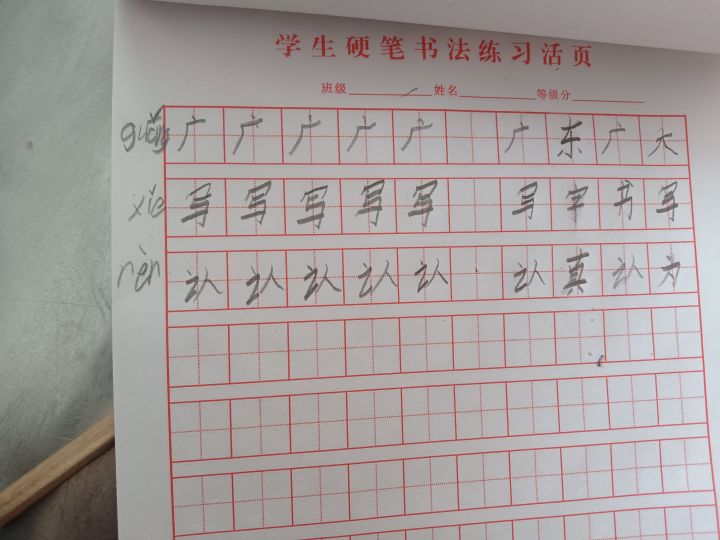 学生硬笔书法练习活页
班级 姓名 等级分
guǎng 广 广 广 广 广 广 东 广 大
xiě 写 写 写 写 写 写 字 书 写
rèn 认 认 认 认 认 认 真 认 为